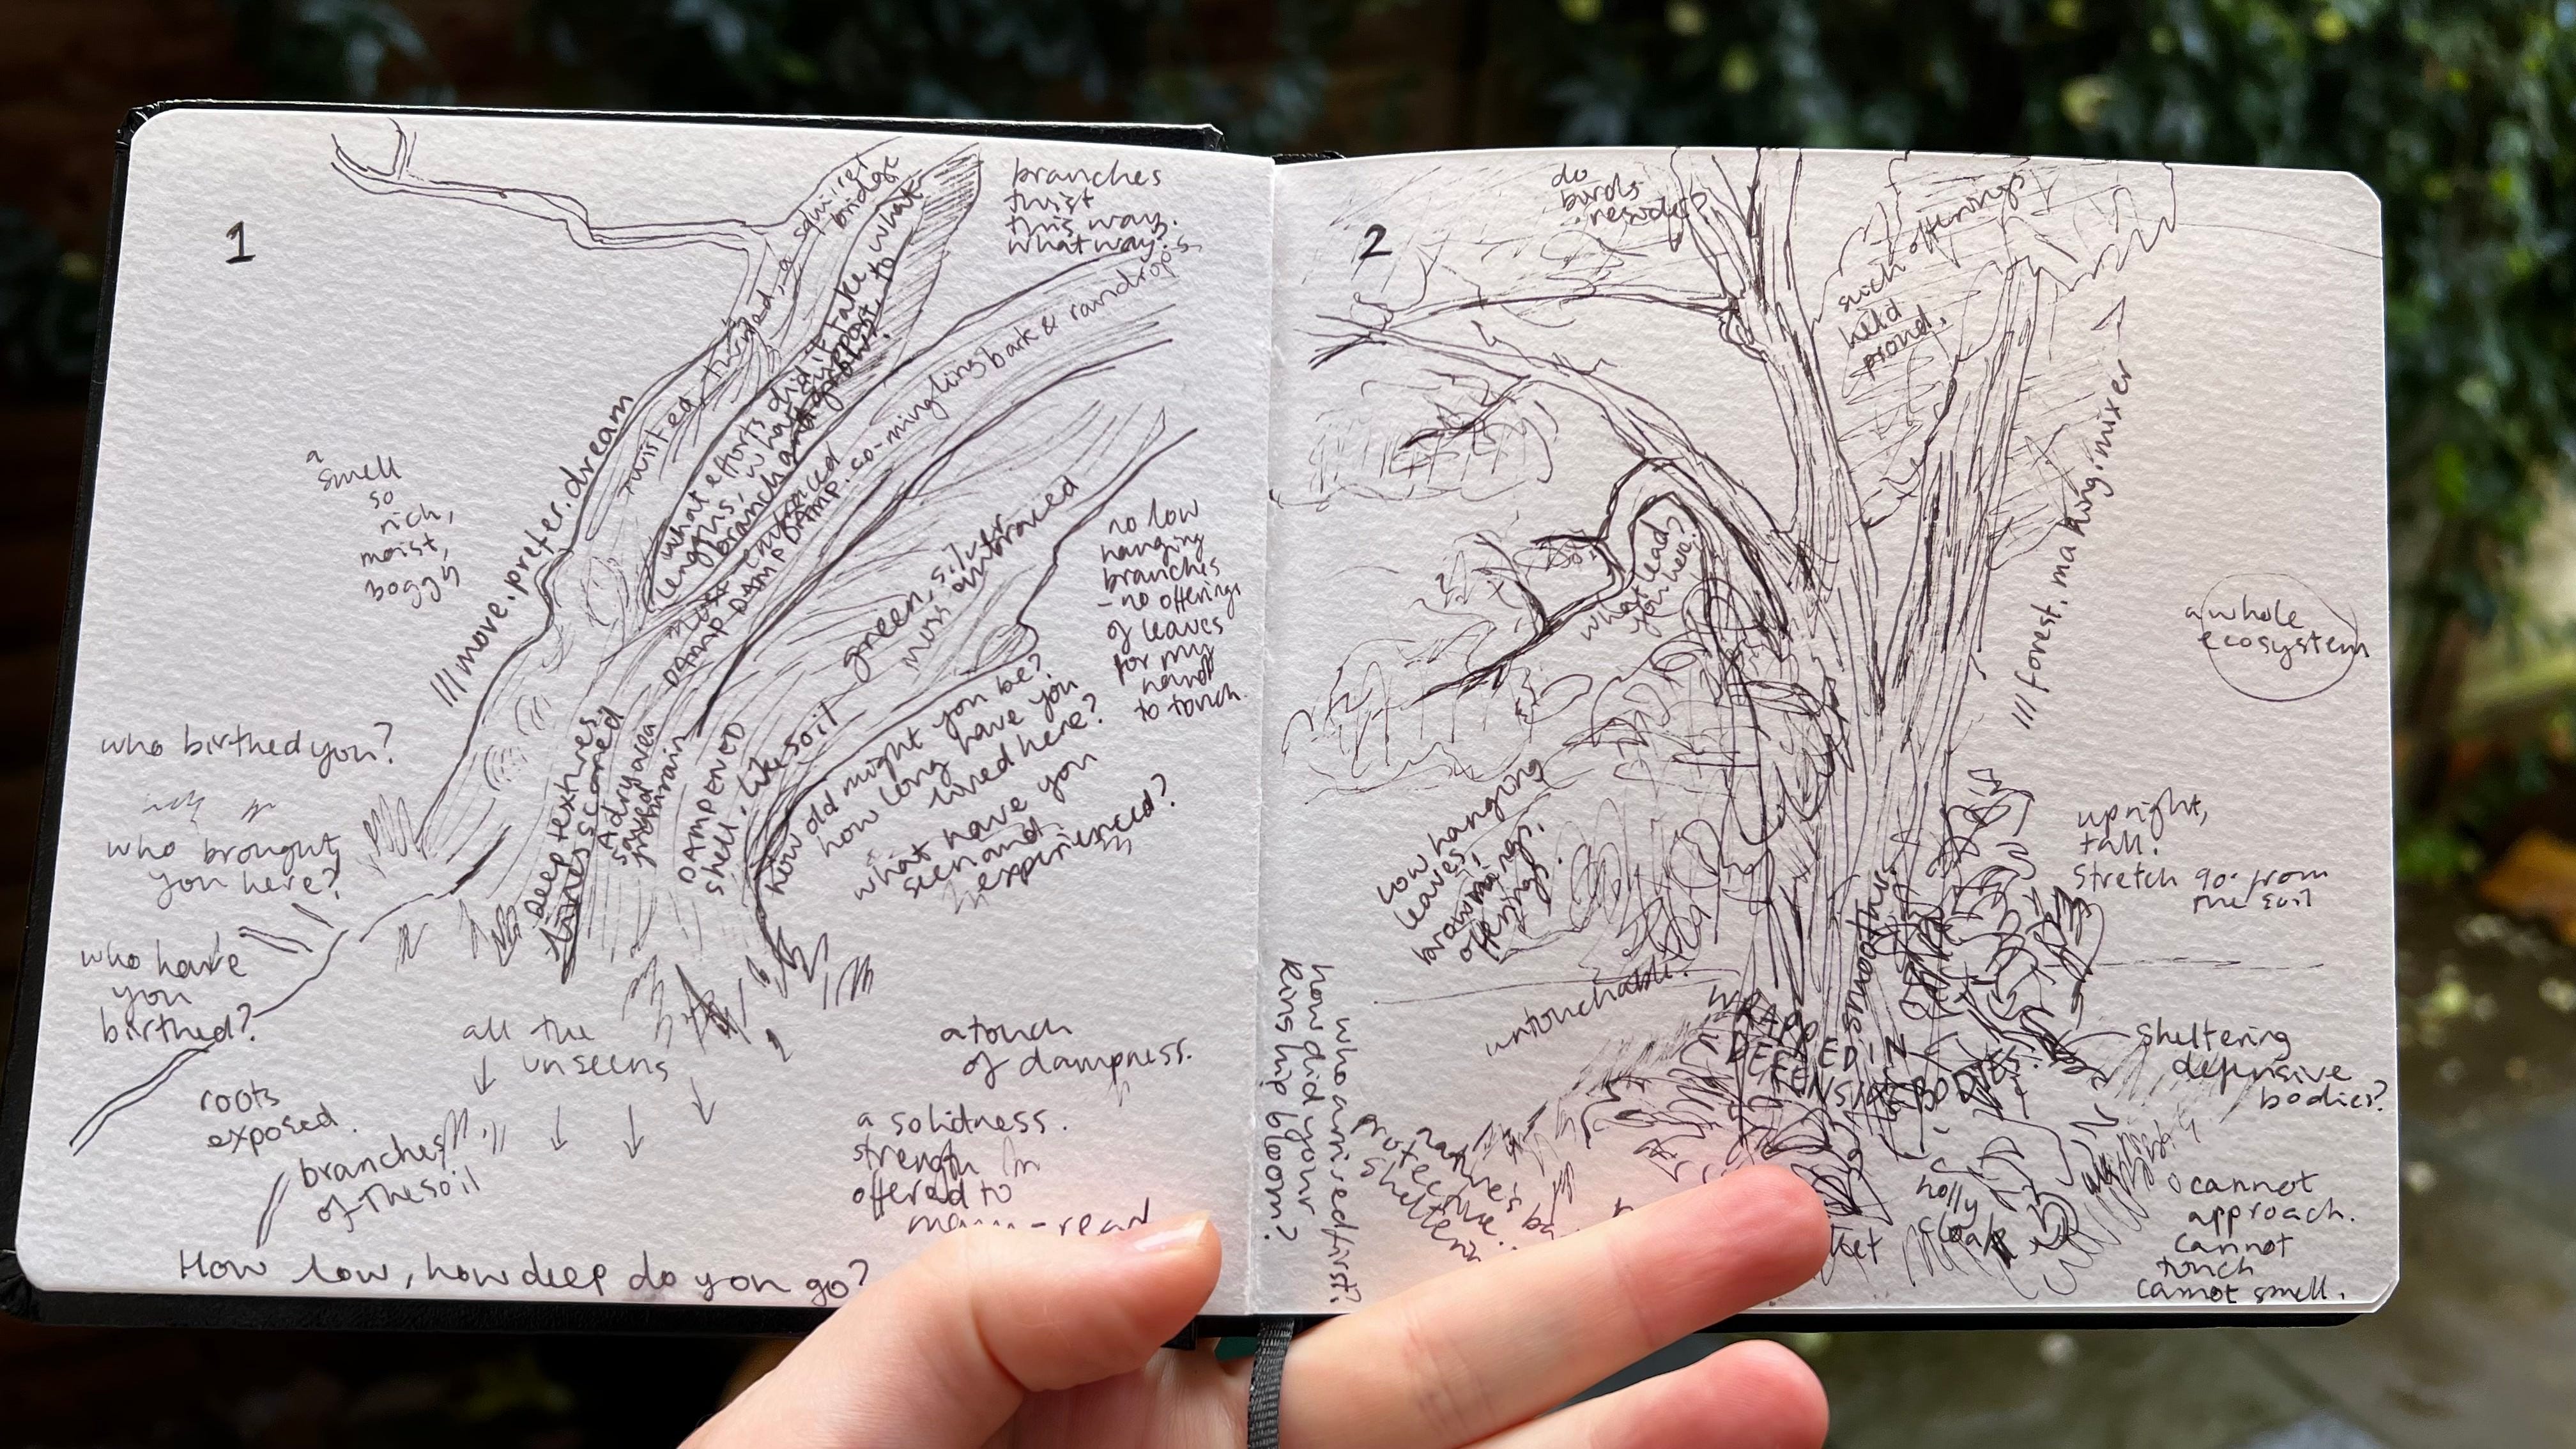 1
branches
twist
this way.
what way?
a squirrel
bridge
twisted, thinned,
what efforts did it take
lengths, what support, to what
branch and grow?
co-mingling bark & raindrops
DAMP DAMP DAMP DAMP.
a
smell
so
rich,
moist,
boggy
///move.prefer.dream
green, silver
moss embraced
no low
hanging
branches
- no offerings
of leaves
for my
hand
to touch.
who birthed you?
who brought
you here?
who have
you
birthed?
deep textures,
lines scarred
A dry area
saved
from rain
DAMPENED
shell, like soil
how old might you be?
how long have you
lived here?
what have you
seen and
experienced?
all the
unseens
a touch
of dampness.
roots
exposed.
branches
of the soil
a solidness.
strength
offered to
How low, how deep do you go?
2
do
birds
reside?
such offerings
held
proud.
what leads
you here?
///forest.making.mixer
a whole
ecosystem
low hanging
leaves,
browning.
offerings.
upright,
tall.
Stretch 90° from
the soil
untouchable.
WRAPPED IN
DEFENSIVE BODIES
sheltering
defensive
bodies?
who arrived first?
how did your
kinship bloom?
nature's
protective
shelter
holly
cloak
cannot
approach.
cannot
touch
cannot smell.